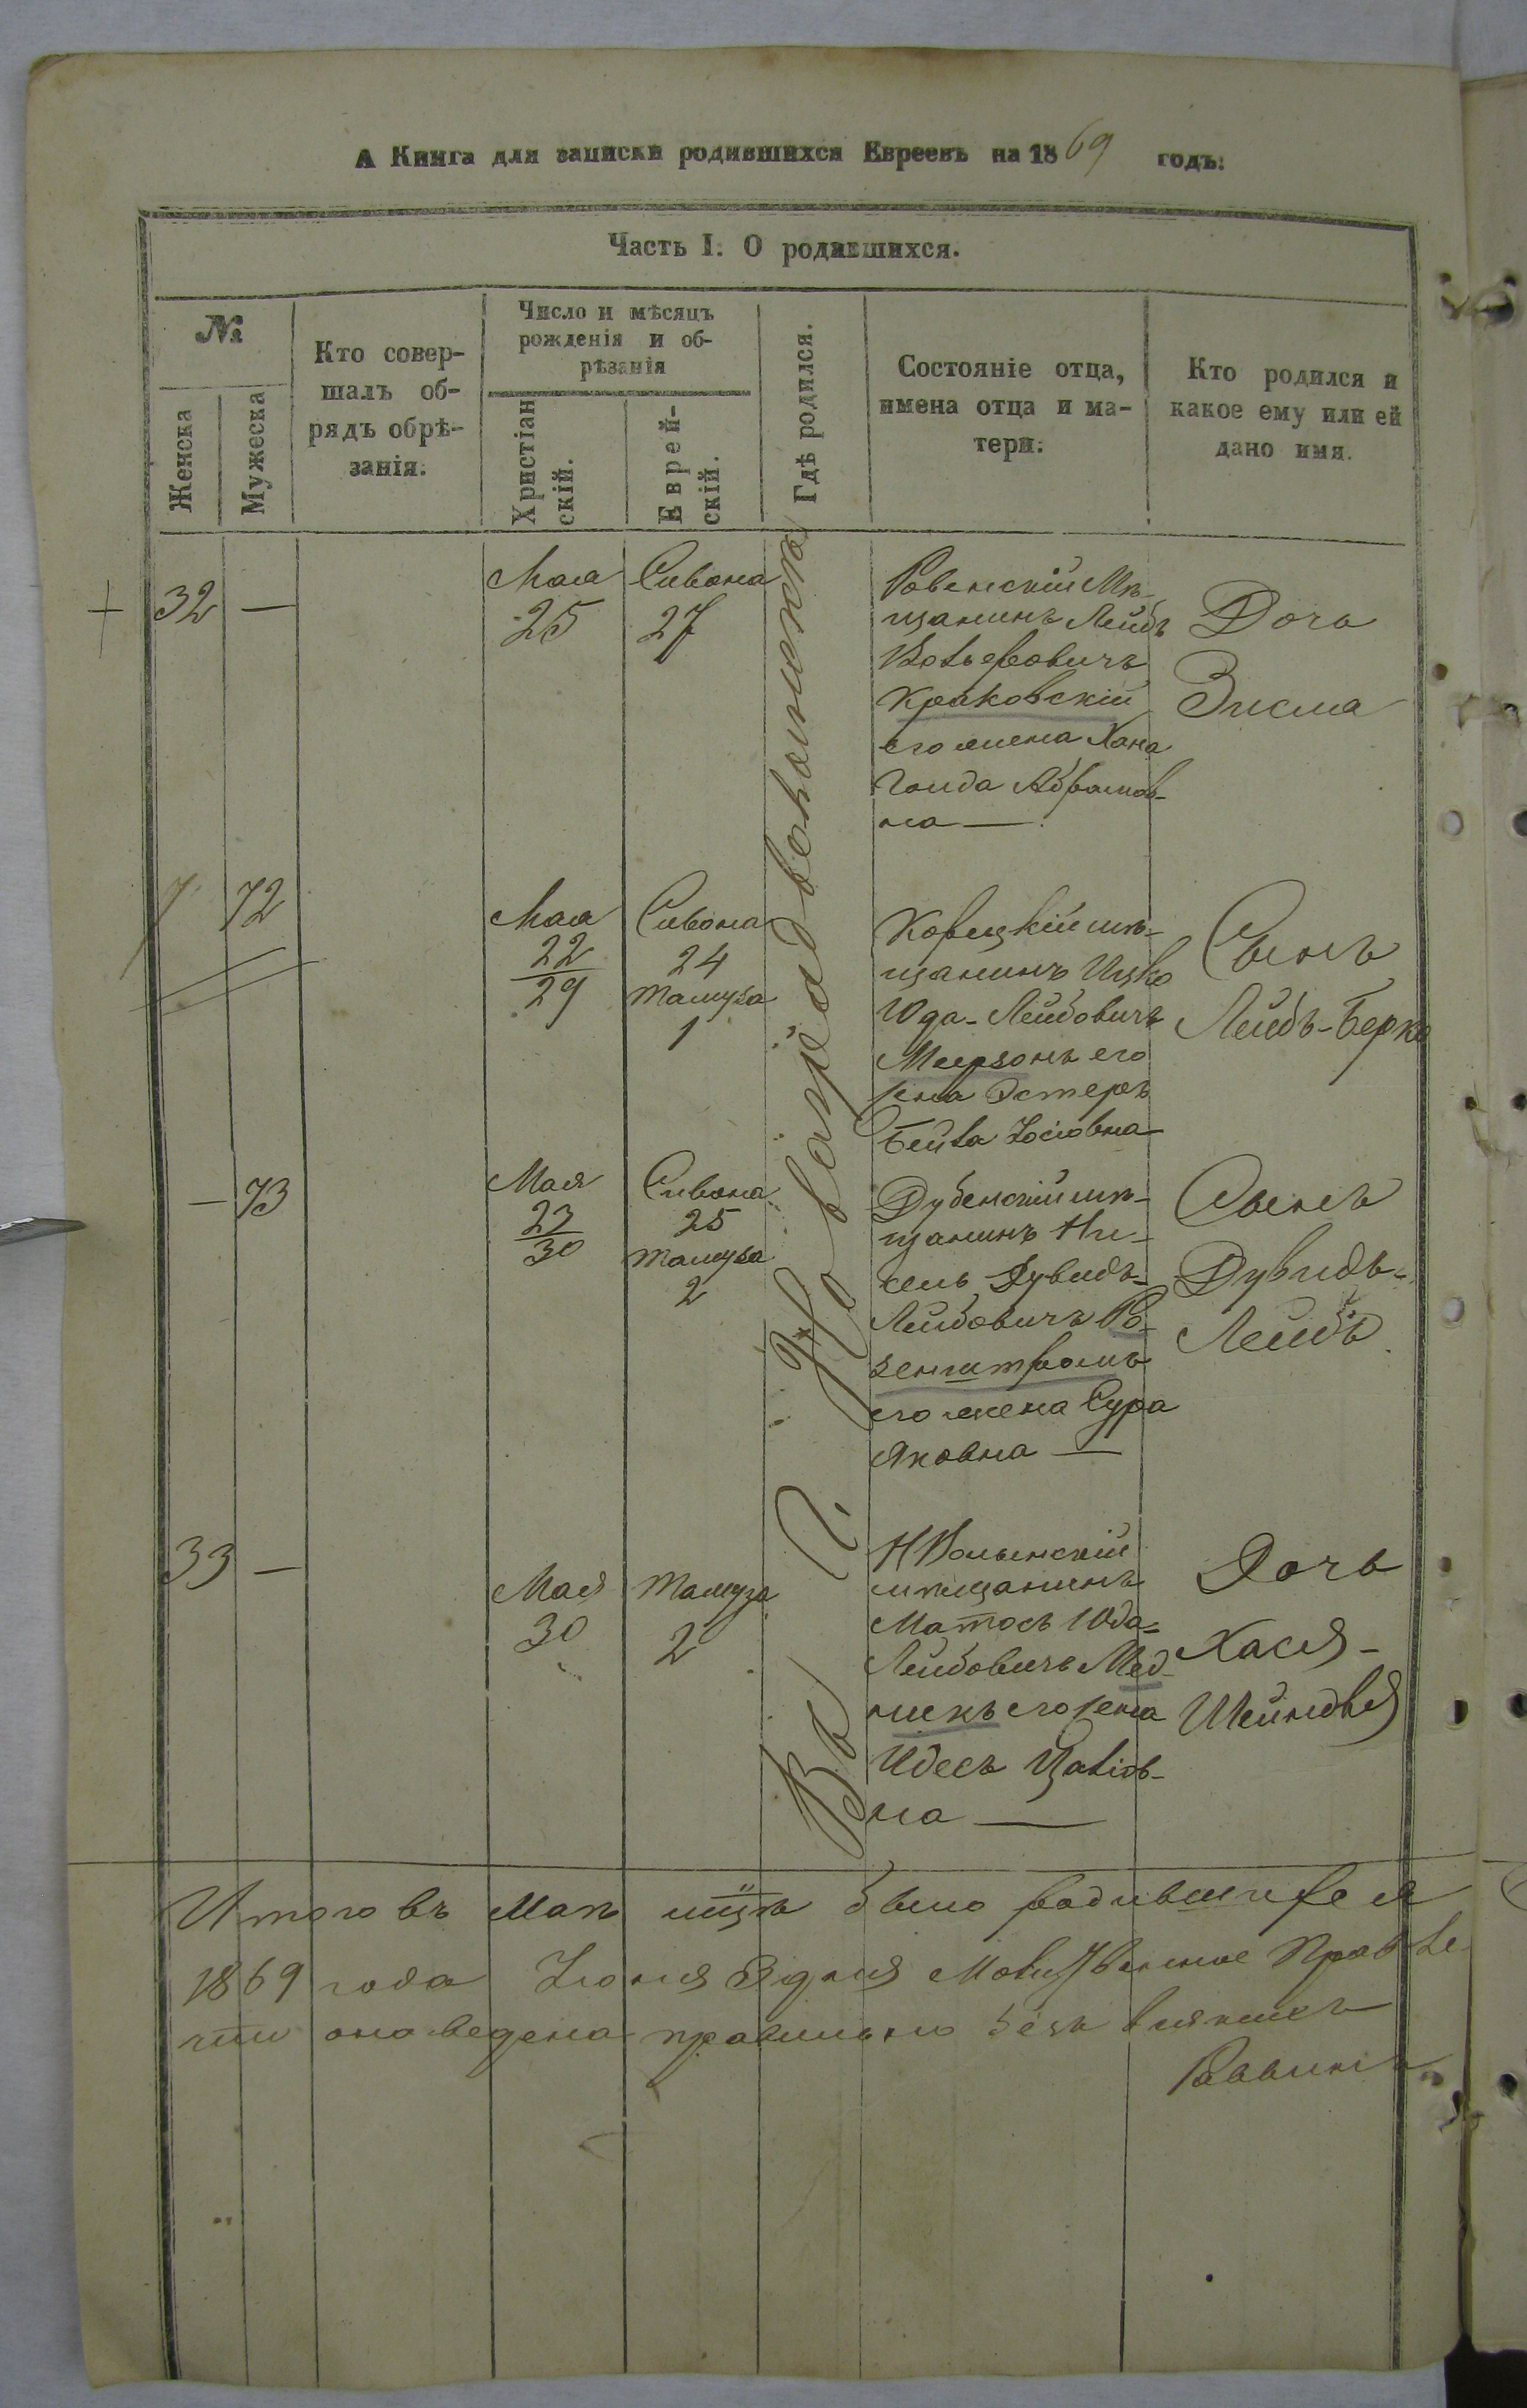 А Книга для записки родившихся Евреевъ на 1869 годъ:
Часть I. О родившихся.
№
Женска
Мужеска
Кто совер-
шалъ об-
рядъ обрѣ-
занія.
Число и мѣсяцъ
рожденія и об-
рѣзанія
Христіан
скій.
Еврей-
скій.
Гдѣ родился.
Состояніе отца,
имена отца и ма-
тери.
Кто родился и
какое ему или ей
дано имя.
32 —
Мая
25
Сивана
27
Ровенскій Мѣ-
щанинъ Лейбъ
Краковскій
его жена Хана
Голда Абрамов-
на —
Дочь
Зисля
72
Мая
22
29
Сивана
24
Тамуза
1
Корецкій мѣ-
щанинъ Ицко
Юда-Лейбовичъ
Меерзонъ его
жена Эстеръ
Бейла Іосіовна
Сынъ
Лейбъ-Берко
— 73
Мая
23
30
Сивана
25
Тамуза
2
Дубенскій мѣ-
щанинъ Ни-
сель Дувидъ-
Лейбовичъ Ро-
зенштромъ
его жена Сура
Яковна —
Сынъ
Дувидъ-
Лейбъ
33 —
Мая
30
Тамуза
2
НВолынскій
мѣщанинъ
Матосъ Юда-
Лейбовичъ Мед-
никъ его жена
Идесъ
на —
Дочь
Хася-
Шейндля
Въ Г. Но
Итого въ Маѣ мцѣ было родившихся
1869 года Іюня 3 дня
оно ведена правильно безъ всякихъ
Раввинъ